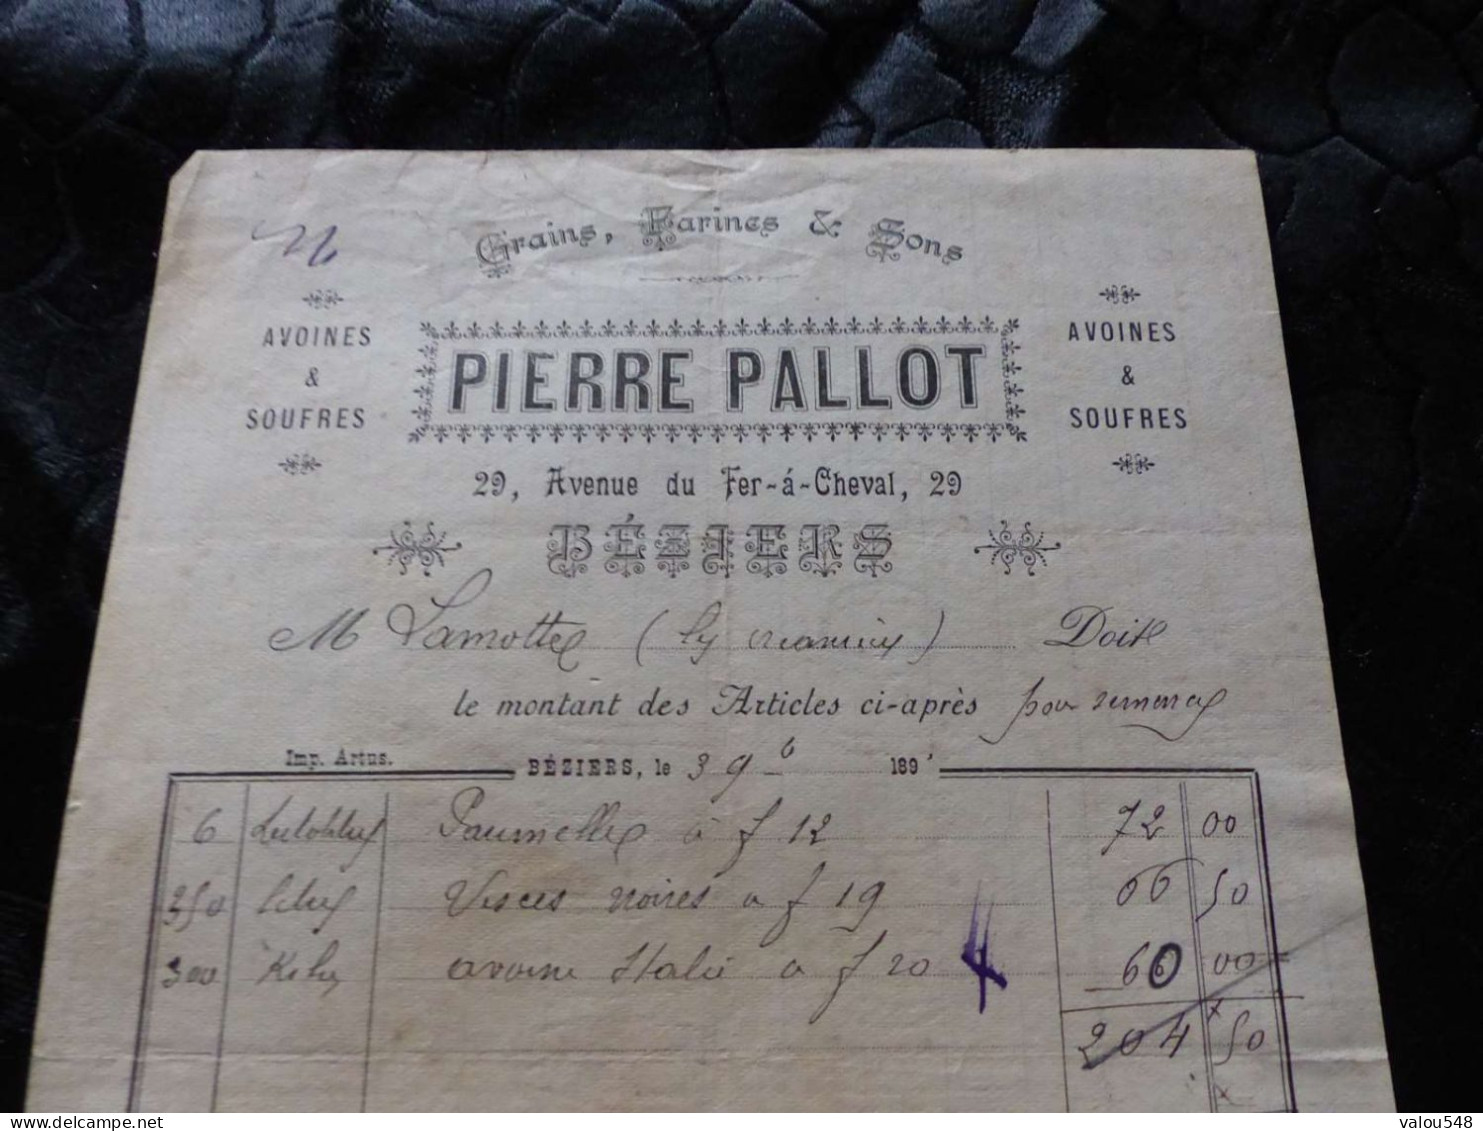 Grains, Farines & Sons
AVOINES & SOUFRES
PIERRE PALLOT
AVOINES & SOUFRES
29, Avenue du Fer-á-Cheval, 29
BÉZIERS
M Lamotte Doit
le montant des Articles ci-après
Imp. Artus.
BÉZIERS, le 3 9b 189
6 Paumelle à f 12 72 00
350 Kilos Vesces noires a f 19 66 50
300 Kilos avoine Italie a f 20 60 00
204 50
delcampe.net
valou548